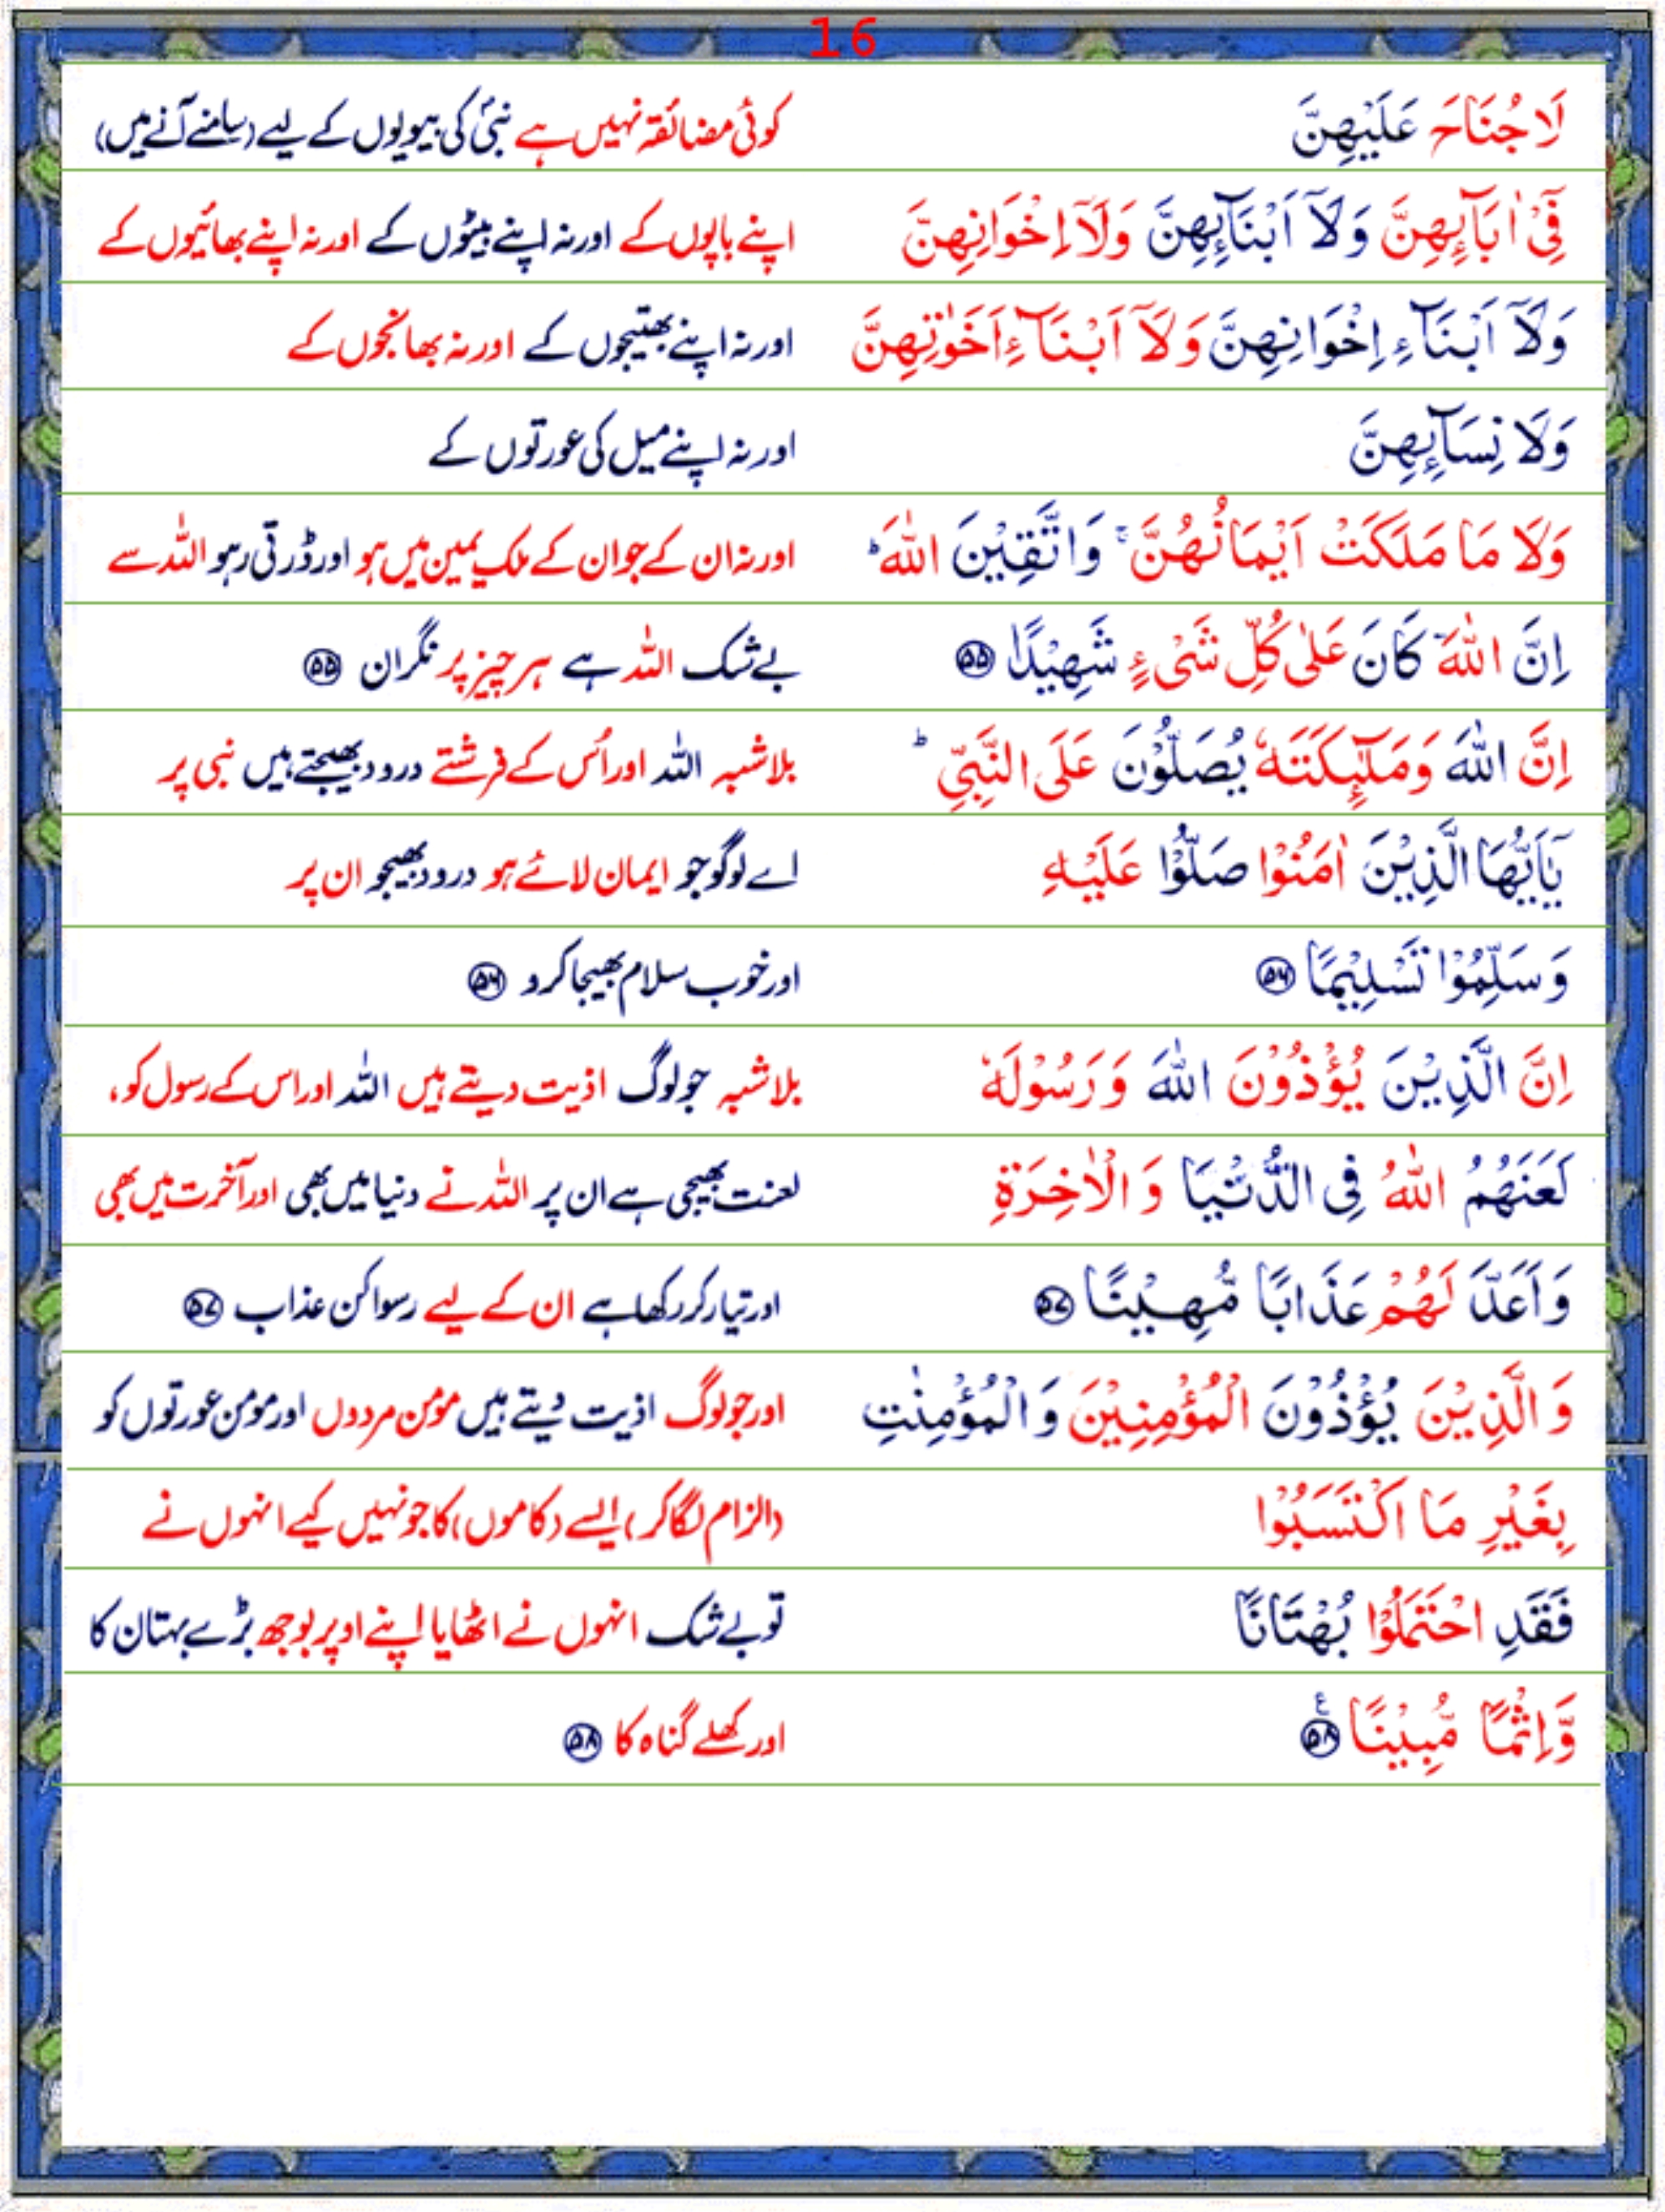 16
لَا جُنَاحَ عَلَيْهِنَّ کوئی مضائقہ نہیں ہے نبیؐ کی بیویوں کے لیے (سامنے آنے میں)
فِيْٓ اٰبَآئِهِنَّ وَلَآ اَبْنَآئِهِنَّ وَلَآ اِخْوَانِهِنَّ اپنے باپوں کے اور نہ اپنے بیٹوں کے اور نہ اپنے بھائیوں کے
وَلَآ اَبْنَآءِ اِخْوَانِهِنَّ وَلَآ اَبْنَآءِ اَخَوٰتِهِنَّ اور نہ اپنے بھتیجوں کے اور نہ بھانجوں کے
وَلَا نِسَآئِهِنَّ اور نہ اپنے میل کی عورتوں کے
وَلَا مَا مَلَكَتْ اَيْمَانُهُنَّ ۚ وَاتَّقِيْنَ اللّٰهَ ؕ اور نہ ان کے جو ان کے ملکِ یمین میں ہو اور ڈرتی رہو اللہ سے
اِنَّ اللّٰهَ كَانَ عَلٰى كُلِّ شَيْءٍ شَهِيْدًا ۵۵ بے شک اللہ ہے ہر چیز پر نگران ۵۵
اِنَّ اللّٰهَ وَمَلٰٓئِكَتَهٗ يُصَلُّوْنَ عَلَى النَّبِيِّ ؕ بلاشبہ اللہ اور اُس کے فرشتے درود بھیجتے ہیں نبی پر
يٰٓاَيُّهَا الَّذِيْنَ اٰمَنُوْا صَلُّوْا عَلَيْهِ اے لوگو جو ایمان لائے ہو درود بھیجو ان پر
وَسَلِّمُوْا تَسْلِيْمًا ۵۶ اور خوب سلام بھیجا کرو ۵۶
اِنَّ الَّذِيْنَ يُؤْذُوْنَ اللّٰهَ وَرَسُوْلَهٗ بلاشبہ جو لوگ اذیت دیتے ہیں اللہ اور اس کے رسول کو،
لَعَنَهُمُ اللّٰهُ فِي الدُّنْيَا وَالْاٰخِرَةِ لعنت بھیجی ہے ان پر اللہ نے دنیا میں بھی اور آخرت میں بھی
وَاَعَدَّ لَهُمْ عَذَابًا مُّهِيْنًا ۵۷ اور تیار کر رکھا ہے ان کے لیے رسوا کن عذاب ۵۷
وَالَّذِيْنَ يُؤْذُوْنَ الْمُؤْمِنِيْنَ وَالْمُؤْمِنٰتِ اور جو لوگ اذیت دیتے ہیں مومن مردوں اور مومن عورتوں کو
بِغَيْرِ مَا اكْتَسَبُوْا (الزام لگا کر) ایسے (کاموں) کا جو نہیں کیے انہوں نے
فَقَدِ احْتَمَلُوْا بُهْتَانًا تو بے شک انہوں نے اٹھایا اپنے اوپر بوجھ بڑے بہتان کا
وَّاِثْمًا مُّبِيْنًا ۵۸ ع اور کھلے گناہ کا ۵۸